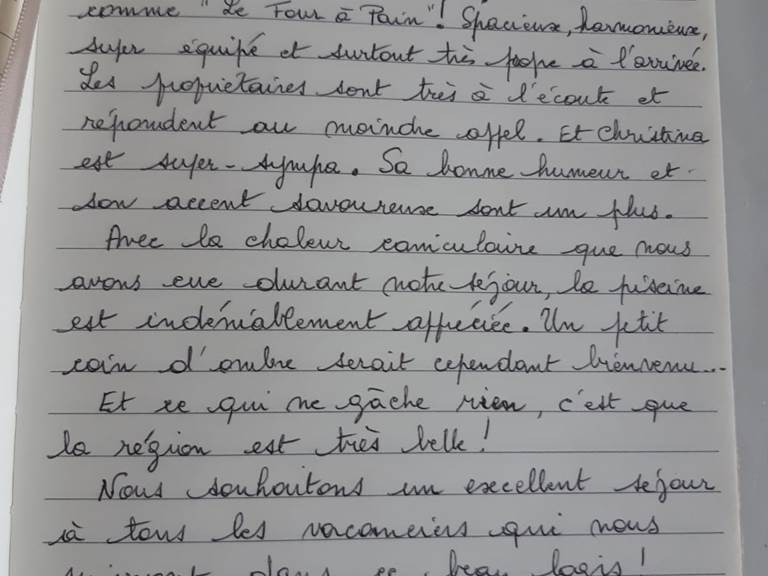 comme "Le Four à Pain"! Spacieux, harmonieux,
super équipé et surtout très pope à l'arrivée.
Les propriétaires sont très à l'écoute et
répondent au moindre appel. Et Christina
est super-sympa. Sa bonne humeur et
son accent savoureux sont un plus.
Avec la chaleur caniculaire que nous
avons eue durant notre séjour, la piscine
est indéniablement appréciée. Un petit
coin d'ombre serait cependant bienvenu...
Et ce qui ne gâche rien, c'est que
la région est très belle!
Nous souhaitons un excellent séjour
à tous les vacanciers qui nous
suivront dans ce beau logis!